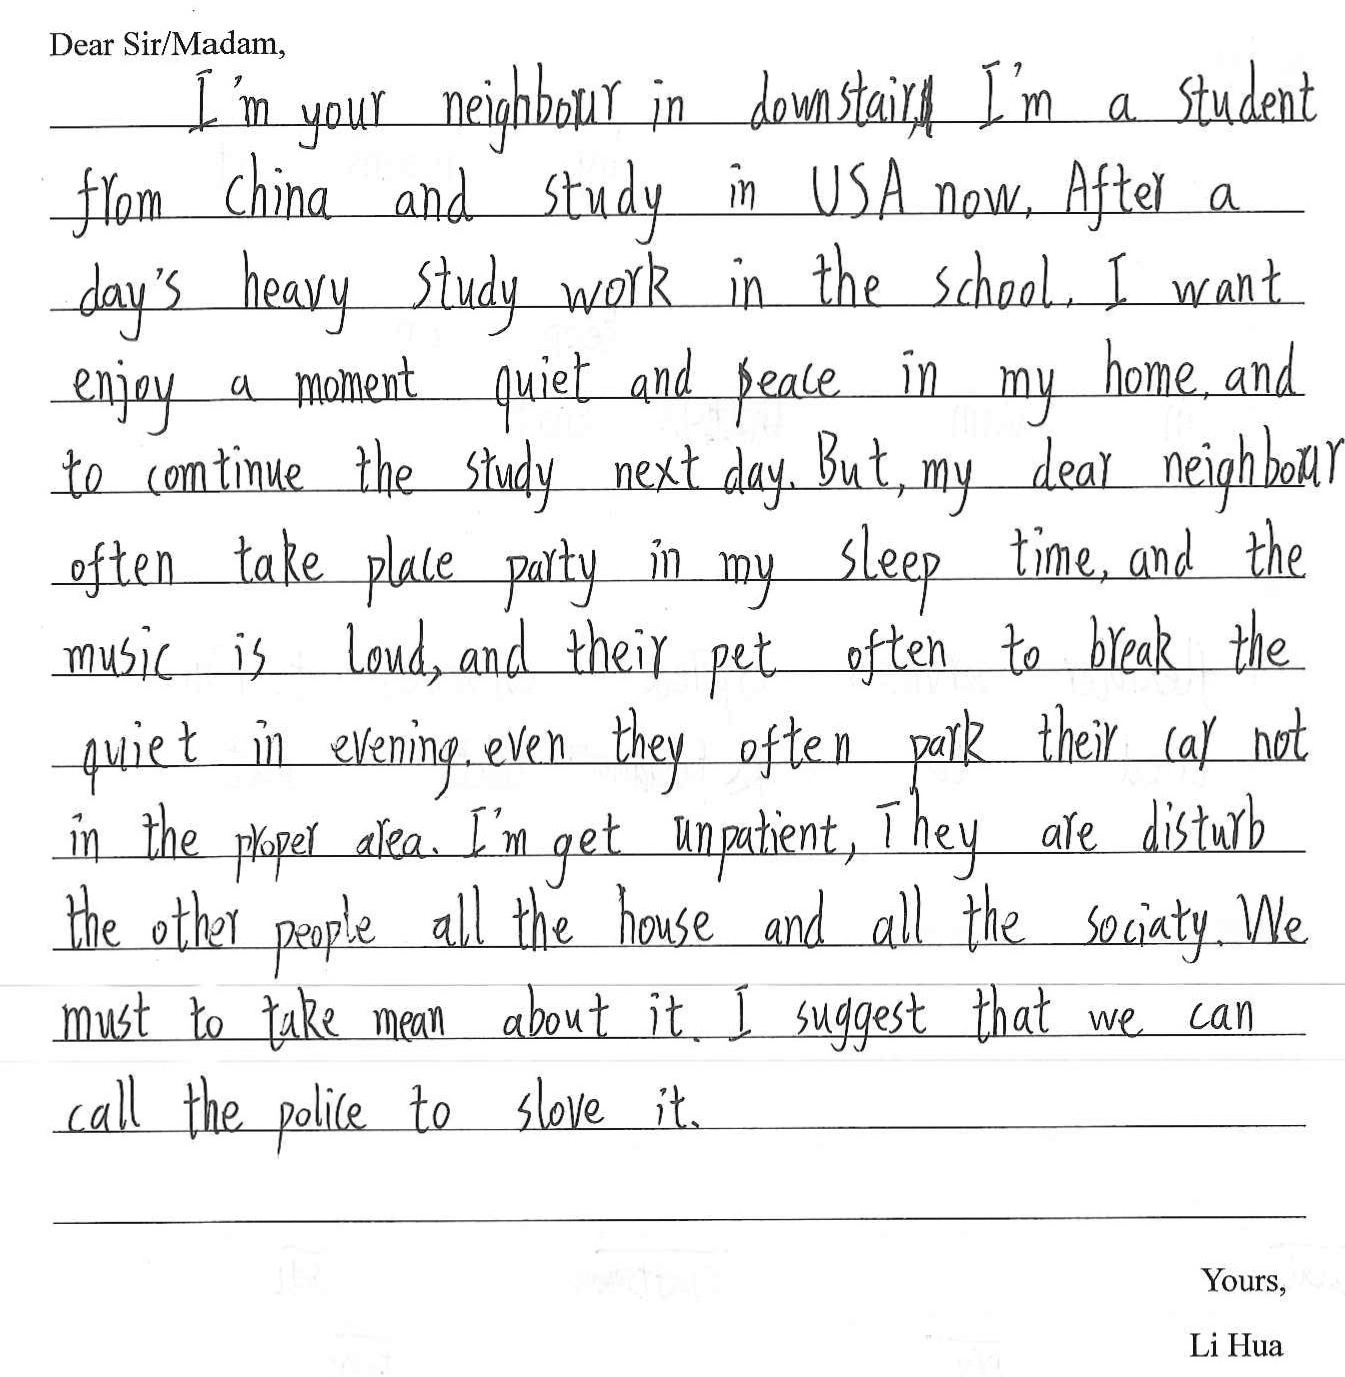 Dear Sir/Madam,
I'm your neighbour in downstair, I'm a student
from China and study in USA now. After a
day's heavy study work in the school, I want
enjoy a moment quiet and peace in my home, and
to comtinue the study next day. But, my dear neighbour
often take place party in my sleep time, and the
music is loud, and their pet often to break the
quiet in evening, even they often park their car not
in the proper area. I'm get unpatient, They are disturb
the other people all the house and all the sociaty. We
must to take mean about it. I suggest that we can
call the police to slove it.
Yours,
Li Hua